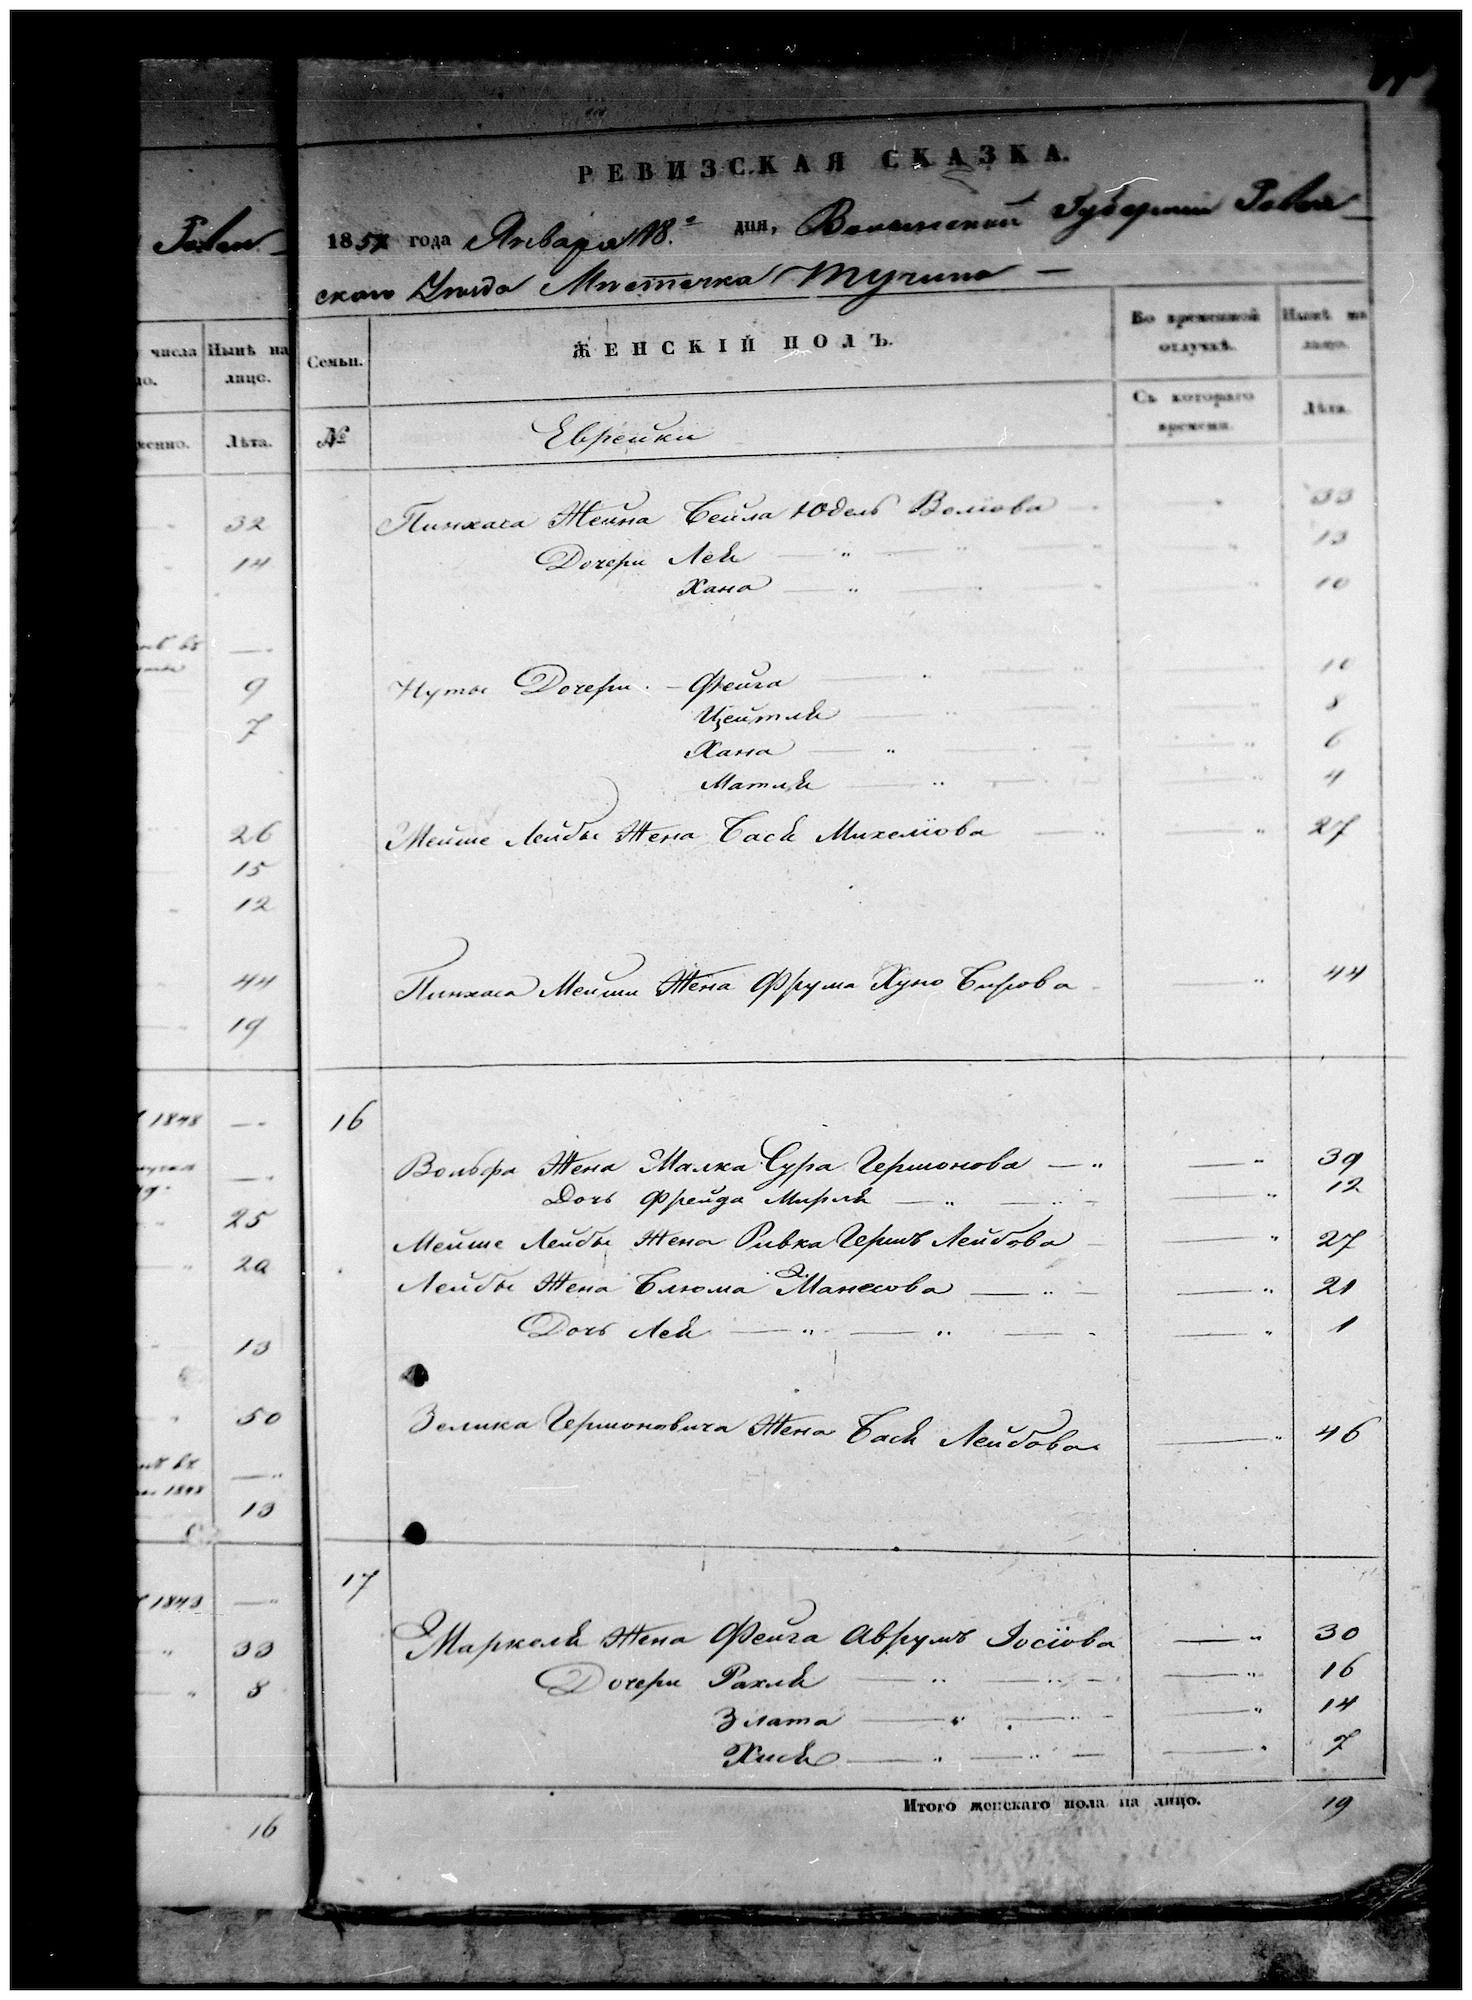 РЕВИЗСКАЯ СКАЗКА.
185 года Января 18.го дня, Волынской Губернии Ровен
ского Уезда Местечка Тучина
Ровен
числа Нынѣ на
лице.
Лѣта.
32
14
9
7
26
15
12
44
19
1848
25
20
13
50
1848
13
1843
33
8
16
Семьи.
ЖЕНСКІЙ ПОЛЪ.
Во временной отлучкѣ.
Нынѣ на лицо.
№
Еврейки
Съ котораго времени.
Лѣта.
Пинхаса Жена Бейла Юдель Волiова 33
Дочери Лея 13
Хана 10
Нуты Дочери Фейга 10
Цейтля 8
Хана 6
Матля 4
Мейше Лейбы Жена Бася Михелiова 27
Пинхаса Мейши Жена Фрума Хуно Бирова 44
16
Вольфа Жена Малка Сура Гершонова 39
Дочь Фрейда Мирля 12
Мейше Лейбы Жена Ривка Гершъ Лейбова 27
Лейбы Жена Блюма Манесова 21
Дочь Лея 1
Зелика Гершоновича Жена Бася Лейбова 46
17
Маркеля Жена Фейга Аврумъ Iосiова 30
Дочери Рахля 16
Злата 14
Хися 7
Итого женскаго пола на лицо. 19